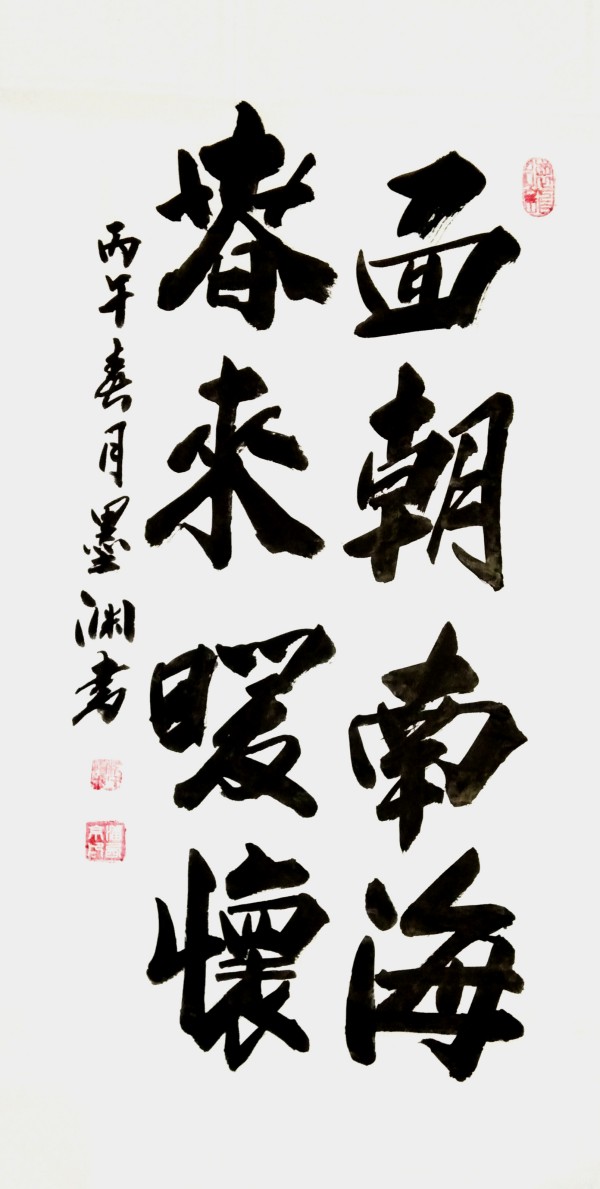 面朝南海
春來暖懷
丙午春月墨渊书